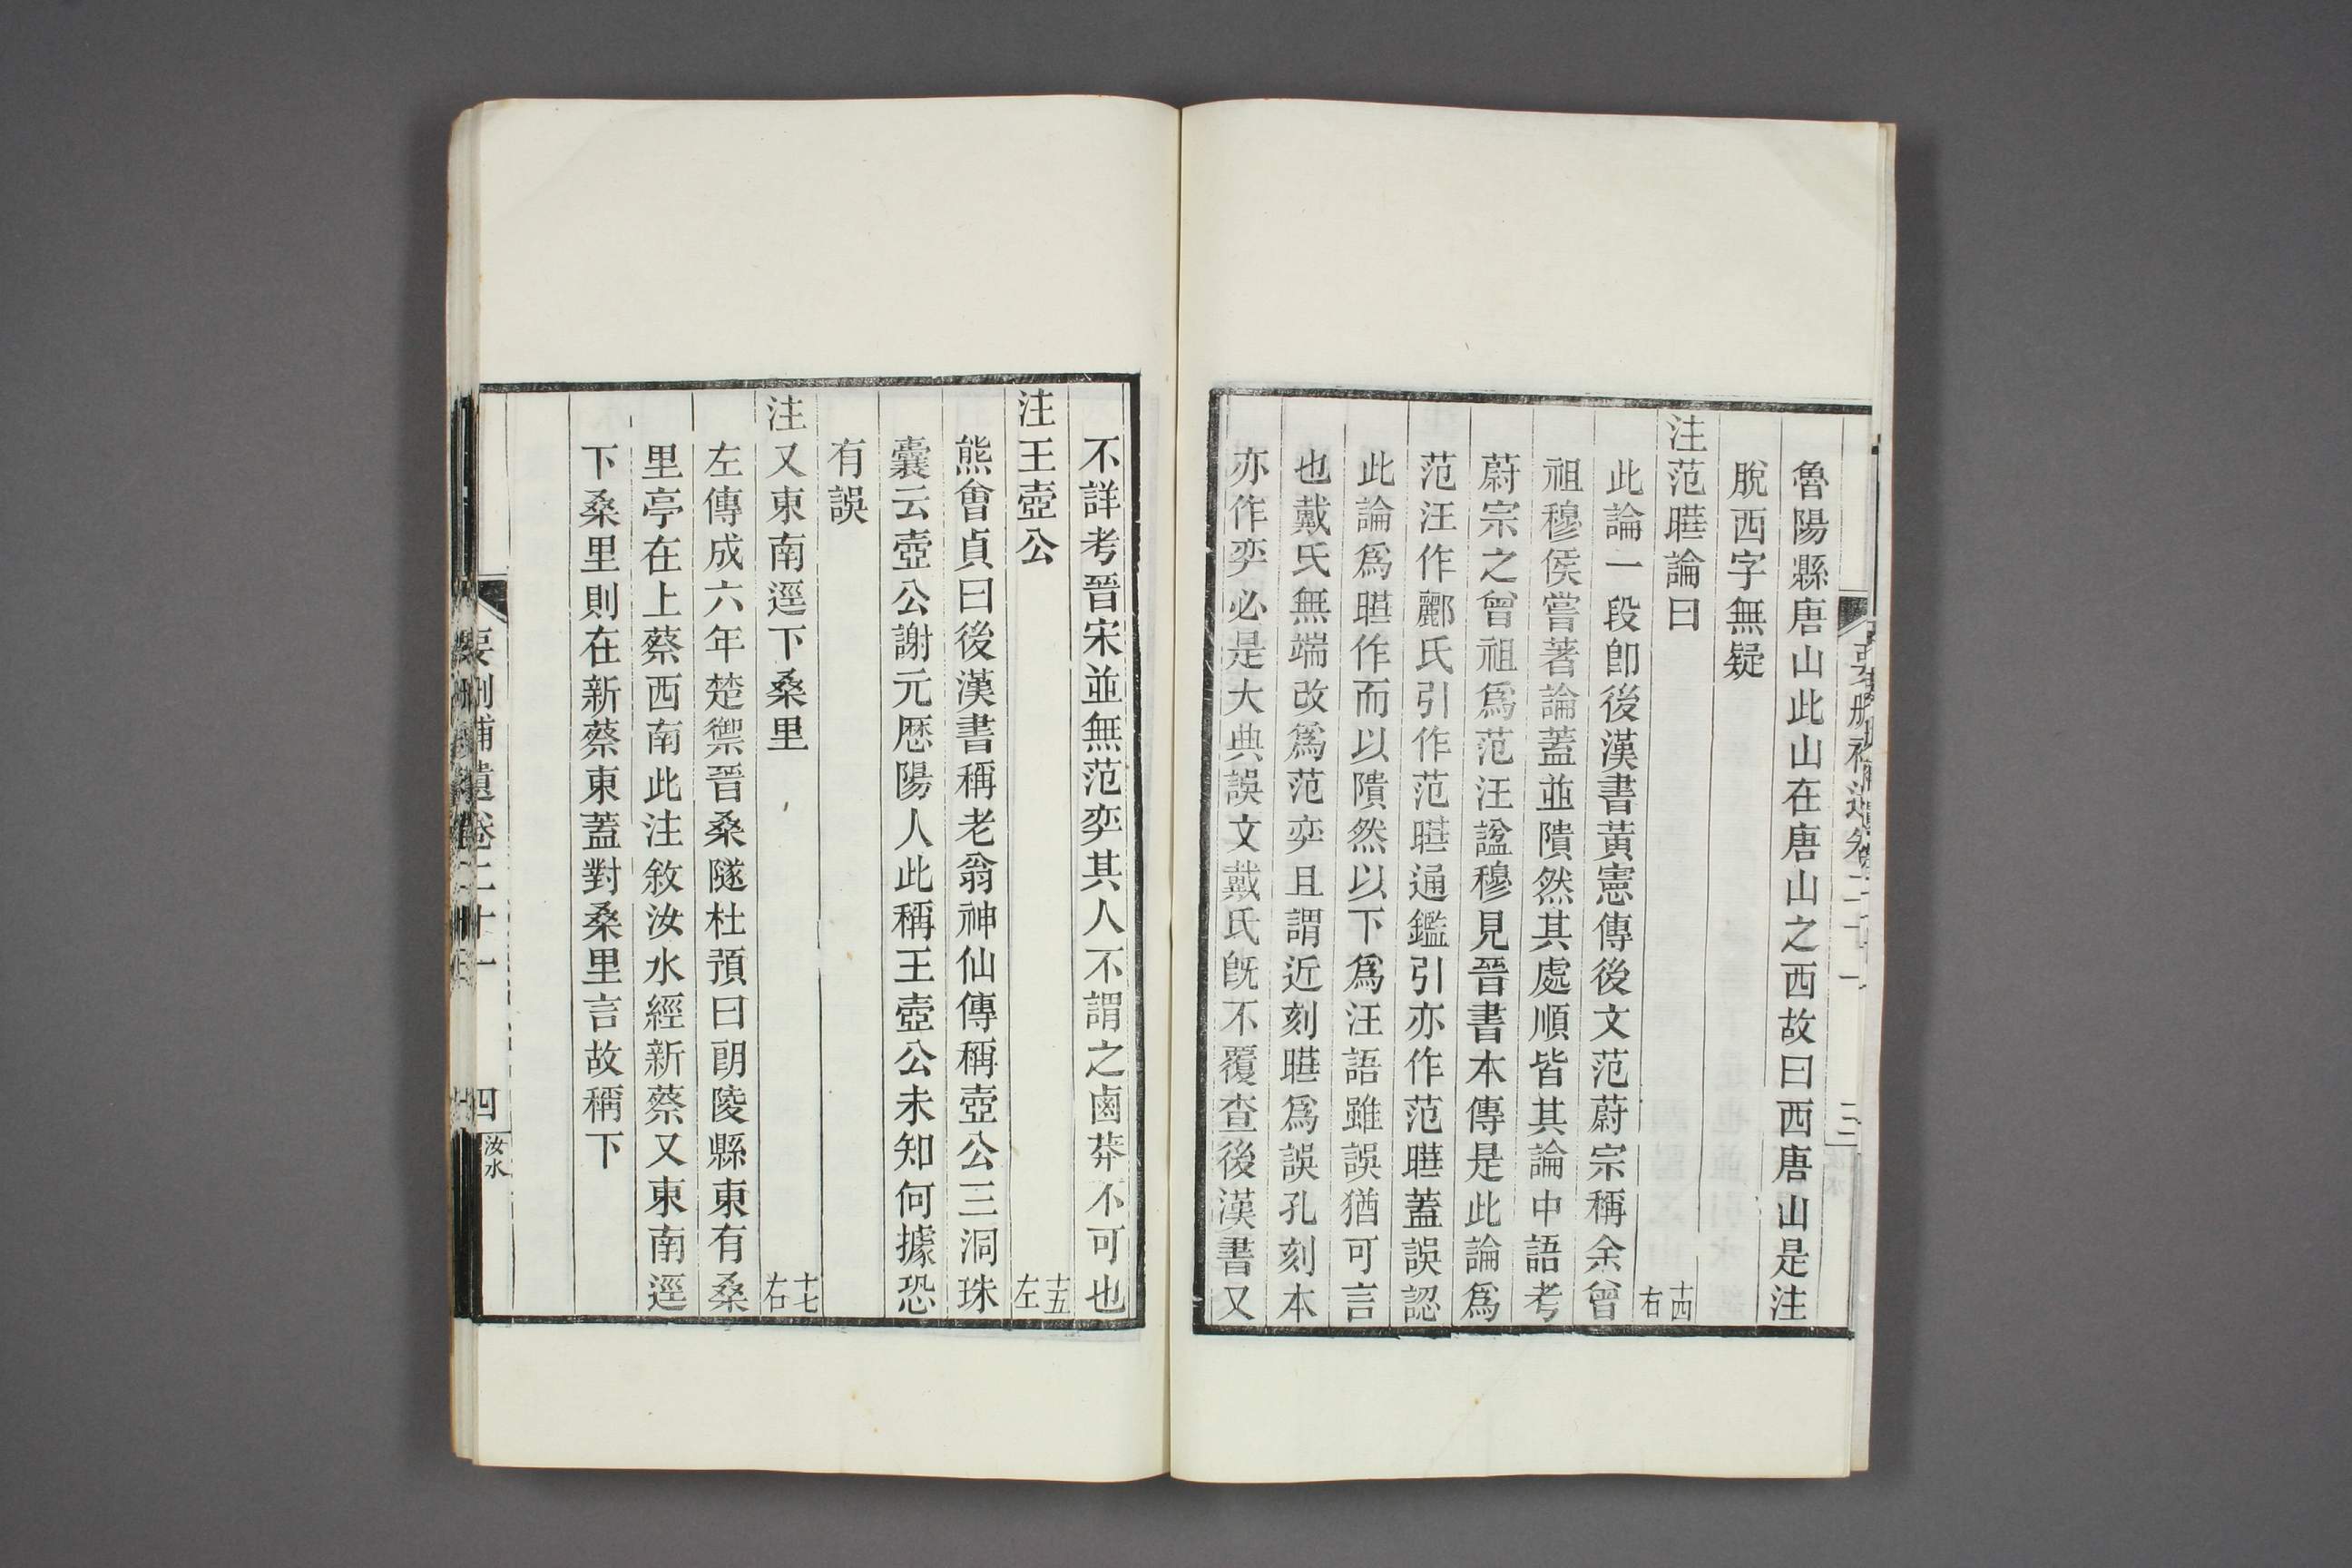 魯陽縣唐山此山在唐山之西故曰西唐山是注
脫西字無疑
注范曄論曰 十四右
此論一段卽後漢書黃憲傳後文范蔚宗稱余曾
祖穆侯嘗著論蓋並隤然其處順皆其論中語考
蔚宗之曾祖爲范汪諡穆見晉書本傳是此論爲
范汪作酈氏引作范曄通鑑引亦作范曄蓋誤認
此論爲曄作而以隤然以下爲汪語雖誤猶可言
也戴氏無端改爲范弈且謂近刻曄爲誤孔刻本
亦作弈必是大典誤文戴氏旣不覆查後漢書又
不詳考晉宋並無范弈其人不謂之鹵莽不可也
注王壺公 十五左
熊會貞曰後漢書稱老翁神仙傳稱壺公三洞珠
囊云壺公謝元歷陽人此稱王壺公未知何據恐
有誤
注又東南逕下桑里 十七右
左傳成六年楚禦晉桑隧杜預曰朗陵縣東有桑
里亭在上蔡西南此注敘汝水經新蔡又東南逕
下桑里則在新蔡東蓋對桑里言故稱下
要刪補遺卷二十一 四 汝水